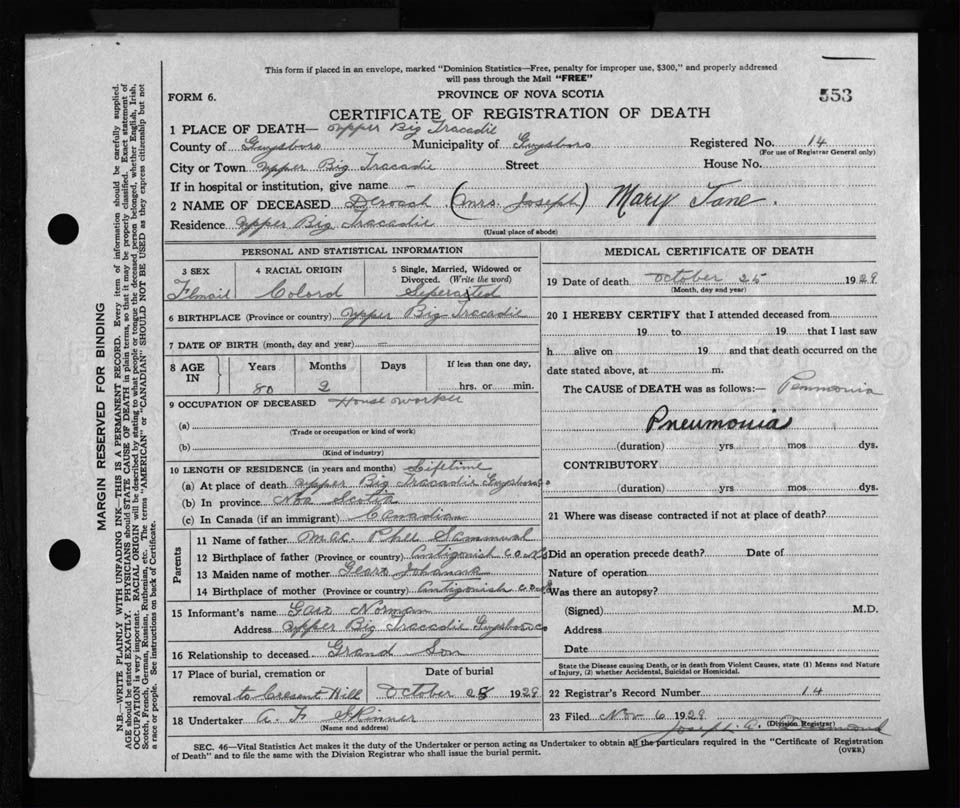 This form if placed in an envelope, marked "Dominion Statistics—Free, penalty for improper use, $300," and properly addressed
will pass through the Mail "FREE"
FORM 6.
PROVINCE OF NOVA SCOTIA
553
CERTIFICATE OF REGISTRATION OF DEATH
1 PLACE OF DEATH— Upper Big Tracadie
County of Guysboro Municipality of Guysboro Registered No. 14
(For use of Registrar General only)
City or Town Upper Big Tracadie Street House No.
If in hospital or institution, give name –
2 NAME OF DECEASED Derosch (Mrs. Joseph) Mary Jane.
Residence Upper Big Tracadie
(Usual place of abode)
PERSONAL AND STATISTICAL INFORMATION
3 SEX 4 RACIAL ORIGIN 5 Single, Married, Widowed or
Divorced. (Write the word)
Femail Colord Seperated
6 BIRTHPLACE (Province or country) Upper Big Tracadie
7 DATE OF BIRTH (month, day and year) –
8 AGE IN Years Months Days If less than one day,
80 2 hrs. or min.
9 OCCUPATION OF DECEASED House worker
(a)
(Trade or occupation or kind of work)
(b)
(Kind of industry)
10 LENGTH OF RESIDENCE (in years and months) Lifetime
(a) At place of death Upper Big Tracadie Guysboro
(b) In province Nva Scotia
(c) In Canada (if an immigrant) Canadian
Parents
11 Name of father Mac Phee Sammual
12 Birthplace of father (Province or country) Antigonish C.O. N.S
13 Maiden name of mother Johannah
14 Birthplace of mother (Province or country) Antigonish C.O. N.S
15 Informant's name Norman
Address Upper Big Tracadie Guysboro Co
16 Relationship to deceased Grand Son
17 Place of burial, cremation or Date of burial
removal to Cresent Hill October 28 1929
18 Undertaker A. F Skinner
(Name and address)
MEDICAL CERTIFICATE OF DEATH
19 Date of death October 25 1929
(Month, day and year)
20 I HEREBY CERTIFY that I attended deceased from
19 to 19 that I last saw
h alive on 19 and that death occurred on the
date stated above, at m.
The CAUSE of DEATH was as follows:— Penmonia
Pneumonia
(duration) yrs mos dys.
CONTRIBUTORY
(duration) yrs mos dys.
21 Where was disease contracted if not at place of death?
Did an operation precede death? Date of
Nature of operation
Was there an autopsy?
(Signed) M.D.
Address
Date
State the Disease causing Death, or in death from Violent Causes, state (1) Means and Nature
of Injury, (2) whether Accidental, Suicidal or Homicidal.
22 Registrar's Record Number 14
23 Filed Nov 6 1929
(Division Registrar)
Joseph A. Desmond
SEC. 46—Vital Statistics Act makes it the duty of the Undertaker or person acting as Undertaker to obtain all the particulars required in the "Certificate of Registration
of Death" and to file the same with the Division Registrar who shall issue the burial permit.
(OVER)
MARGIN RESERVED FOR BINDING
N.B.—WRITE PLAINLY WITH UNFADING INK—THIS IS A PERMANENT RECORD. Every item of information should be carefully supplied.
AGE should be stated EXACTLY. PHYSICIANS should STATE CAUSE OF DEATH in plain terms, so that it may be properly classified. Exact statement of
OCCUPATION is very important. RACIAL ORIGIN will be described by stating to what people or tongue the deceased person belonged, whether English, Irish,
Scotch, French, German, Russian, Ruthenian, etc. The terms "AMERICAN" or "CANADIAN" SHOULD NOT BE USED as they express citizenship but not
a race or people. See instructions on back of Certificate.